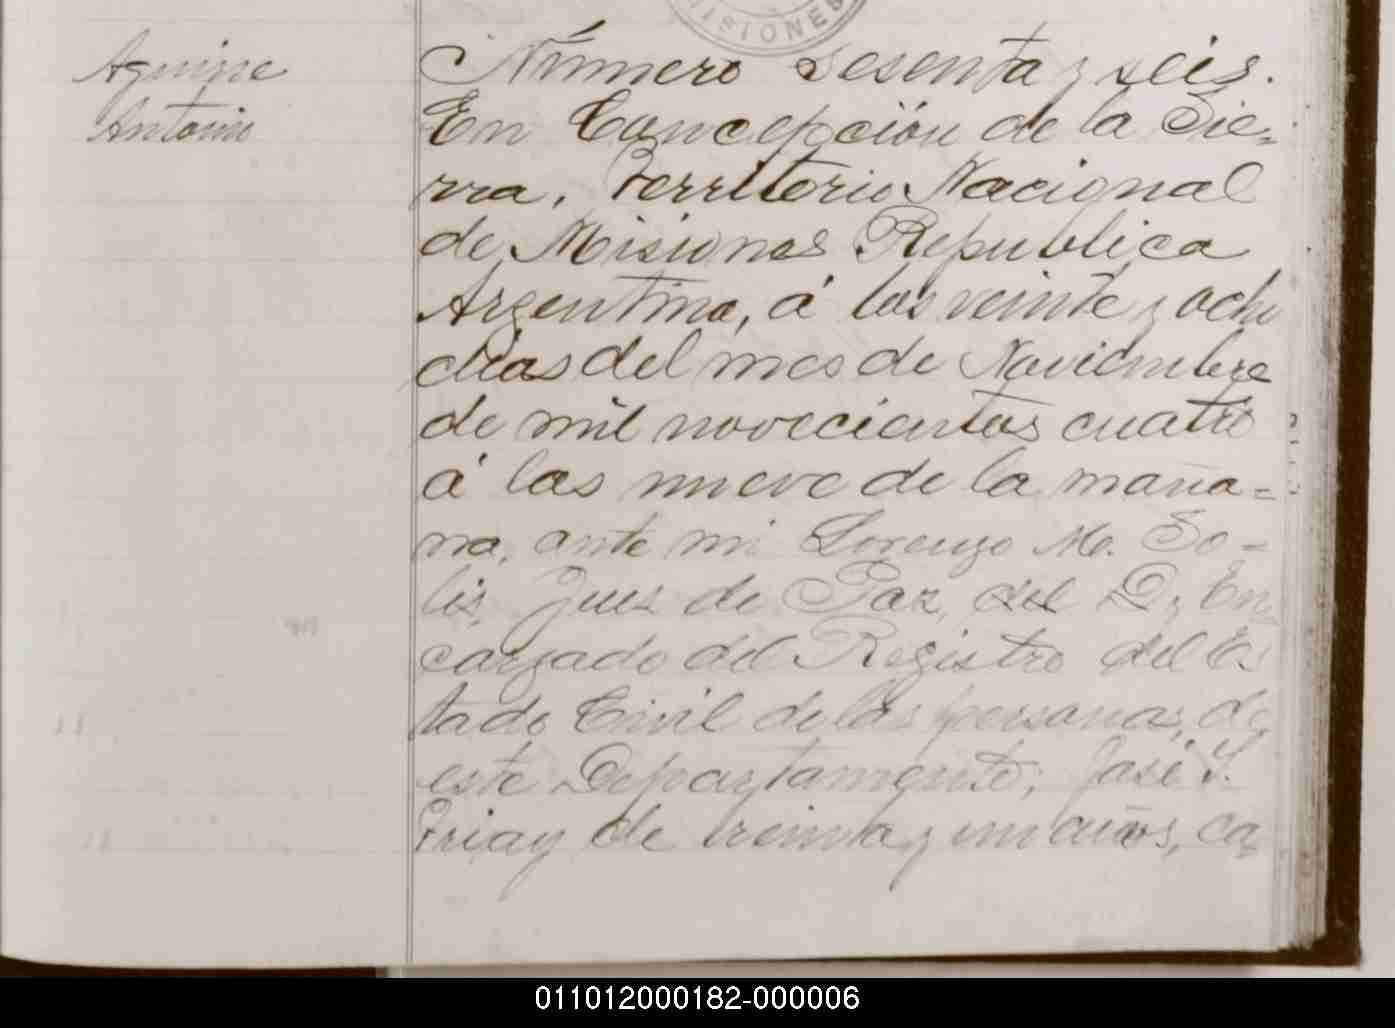 MISIONES
Aguirre
Antonio
Número sesenta y seis.
En Concepción de la Sie-
rra, Territorio Nacional
de Misiones Republica
Argentina, á los veinte y ocho
dias del mes de Noviembre
de mil novecientos cuatro
á las nueve de la maña=
na, ante mi Lorenzo M. So=
lis, Juez de Paz, del D. y En
cargado del Registro del Es
tado Civil de las personas, de
este Departamento, José S.
de treinta y un años, ca
011012000182-000006